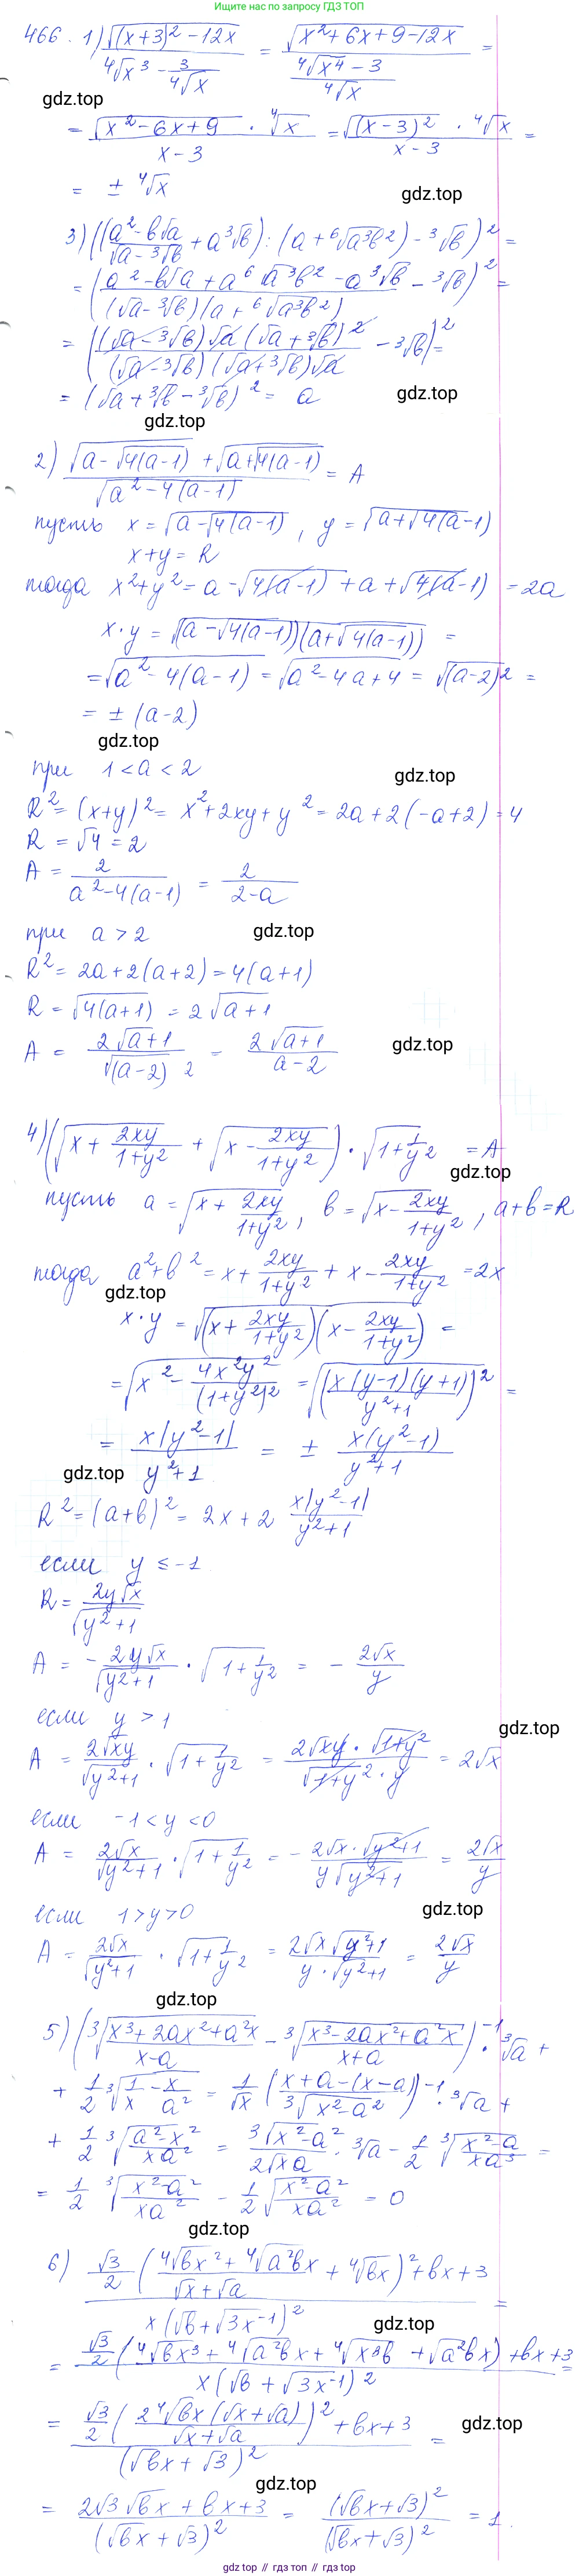 Ищите нас по запросу ГДЗ ТОП
466. 1) √((x+3)² - 12x) / (⁴√x³ - 3/⁴√x) = √(x² + 6x + 9 - 12x) / ((⁴√x⁴ - 3)/⁴√x) =
gdz.top
= √(x² - 6x + 9) · ⁴√x / (x - 3) = √((x - 3)²) · ⁴√x / (x - 3) =
= ± ⁴√x
gdz.top
3) (((a² - b√a)/(√a - ³√b) + a³√b) : (a + ⁶√(a³b²)) - ³√b)² =
= ((a² - b√a + a⁶√(a³b²) - a³√b)/((√a - ³√b)(a + ⁶√(a³b²))) - ³√b)² =
= (((√a - ³√b)√a(√a + ³√b)²)/((√a - ³√b)(√a + ³√b)√a) - ³√b)² =
= (√a + ³√b - ³√b)² = a
gdz.top
gdz.top
2) (√(a - √4(a-1)) + √(a + √4(a-1))) / √(a² - 4(a-1)) = A
пусть x = √(a - √4(a-1)), y = √(a + √4(a-1))
x + y = R
тогда x² + y² = a - √4(a-1) + a + √4(a-1) = 2a
x · y = √((a - √4(a-1))(a + √4(a-1))) =
= √(a² - 4(a-1)) = √(a² - 4a + 4) = √(a-2)² =
= ± (a-2)
gdz.top
при 1 < a < 2
gdz.top
R² = (x+y)² = x² + 2xy + y² = 2a + 2(-a+2) = 4
R = √4 = 2
A = 2/(a² - 4(a-1)) = 2/(2-a)
при a > 2
gdz.top
R² = 2a + 2(a+2) = 4(a+1)
R = √4(a+1) = 2√(a+1)
A = 2√(a+1)/√(a-2)² = 2√(a+1)/(a-2)
gdz.top
4) (√(x + 2xy/(1+y²)) + √(x - 2xy/(1+y²))) · √(1 + 1/y²) = A
gdz.top
пусть a = √(x + 2xy/(1+y²)), b = √(x - 2xy/(1+y²)), a+b = R
тогда a² + b² = x + 2xy/(1+y²) + x - 2xy/(1+y²) = 2x
gdz.top
x · y = √((x + 2xy/(1+y²))(x - 2xy/(1+y²))) =
= √(x² - 4x²y²/(1+y²)²) = √((x(y-1)(y+1))/(y²+1))² =
= x|y²-1|/(y²+1) = ± x(y²-1)/(y²+1)
gdz.top
R² = (a+b)² = 2x + 2 x|y²-1|/(y²+1)
если y ≤ -1
R = 2y√x/√(y²+1)
A = - 2y√x/√(y²+1) · √(1 + 1/y²) = - 2√x/y
если y > 1
gdz.top
A = 2√xy/√(y²+1) · √(1 + 1/y²) = 2√xy · √(1+y²)/(√(1+y²) · y) = 2√x
если -1 < y < 0
A = 2√x/√(y²+1) · √(1 + 1/y²) = - 2√x · √(y²+1)/(y√(y²+1)) = 2√x/y
если 1 > y > 0
gdz.top
A = 2√x/√(y²+1) · √(1 + 1/y²) = 2√x √(y²+1)/(y · √(y²+1)) = 2√x/y
gdz.top
5) (³√(x³ + 2ax² + a²x)/(x-a) - ³√(x³ - 2ax² + a²x)/(x+a))⁻¹ · ³√a +
+ 1/2 ³√(1/x - x/a²) = 1/√x ((x + a - (x-a))/³√(x² - a²))⁻¹ · ³√a +
+ 1/2 ³√((a² - x²)/xa²) = ³√(x² - a²)/(2√xa) · ³√a - 1/2 ³√((x² - a)/xa³) =
= 1/2 ³√((x² - a²)/xa²) - 1/2 √((x² - a²)/xa²) = 0
gdz.top
6) (√3/2 ((⁴√bx² + ⁴√a²bx)/(√x + √a) + ⁴√bx)² + bx + 3) / (x(√b + √3x⁻¹)²) =
gdz.top
= (√3/2 (⁴√bx³ + ⁴√a²bx + ⁴√x³b + √a²bx) + bx + 3) / (x(√b + √3x⁻¹)²) =
= (√3/2 (2⁴√bx(√x + √a)/(√x + √a))² + bx + 3) / (√bx + √3)² =
gdz.top
gdz.top
= (2√3√bx + bx + 3)/(√bx + √3)² = (√bx + √3)²/(√bx + √3)² = 1.
gdz.top // гдз.топ // гдз.top